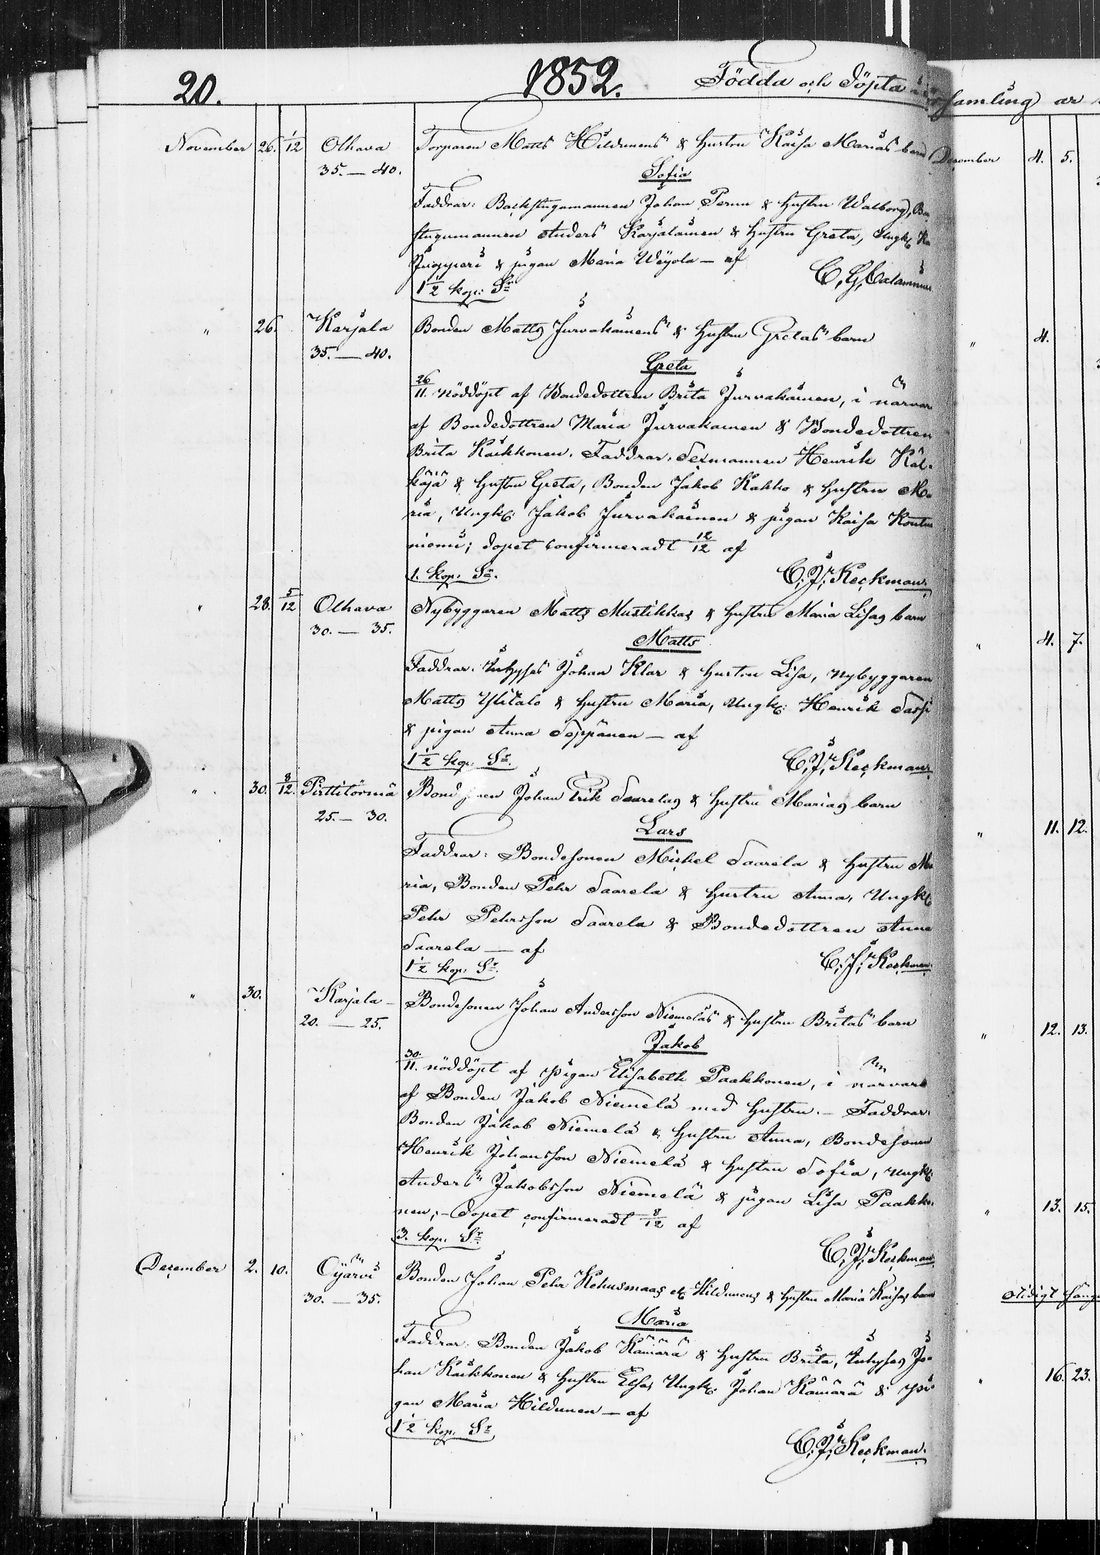 20. 1852. Födda och Döpta
samling år
November 26. 1/12 Olhava Torparen Matts Hildunens & hustrun Kaisa Marias barn
35.—40. Sofia
Faddrar: Backstugumannen Johan Perun & hustru Walborg, Bac
stugumannen Anders Karjalainen & hustru Greta, Ungk.
& pigan Maria — af
C. G. Calamnius
1/2 kop. Sr.
" 26. Karjala Bonden Matts Jurvakainens & hustru Gretas barn
35.—40. Greta
26/11 nöddöpt af Bondedottren Brita Jurvakainen, i närvar
af Bondedottren Maria Jurvakainen & Bondedottren
Brita Kaikkonen. Faddrar: Sexmannen Henrik Käl-
käjä & hustru Greta, Bonden Jakob Kakko & hustru Ma-
ria, Ungk. Jakob Jurvakainen & pigan Kaisa
niemi; dopet confirmeradt 12/12 af
1. kop. Sr. C. J. Keckman.
" 28. 5/12 Olhava Nybyggaren Matts Mustikkas & hustru Maria Lisas barn
30.—35. Matts
Faddrar: Inhyses Johan Klar & hustru Lisa, nybyggaren
Matts Ylitalo & hustru Maria, Ungk. Henrik Sassi
& pigan Anna Seppänen — af
1/2 kop. Sr. C. J. Keckman.
" 30. 8/12 Pirttitörmä Bondsonen Johan Erik Saarelas & hustru Marias barn
25.—30. Lars
Faddrar: Bondesonen Mickel Saarela & hustru Ma
ria, Bonden Pehr Saarela & hustru Anna, Ungk.
Pehr Pehrsson Saarela & Bondedottren Anna
Saarela — af
1/2 kop. Sr. C. J. Keckman
" 30. Karjala Bondesonen Johan Andersson Niemeläs & hustru Britas barn
20.—25. Jakob
30/11 nöddöpt af pigan Elisabeth Paakkonen, i närvaro
af Bonden Jakob Niemelä med hustru. — Faddrar:
Bonden Jakob Niemelä & hustru Anna, Bondesonen
Henrik Johansson Niemelä & hustru Sofia, Ungk.
Anders Jakobsson Niemelä & pigan Lisa Paakko-
nen; — dopet confirmeradt 8/12 af
3. kop. Sr. C. J. Keckman
December 2. 10. Oijärvi Bonden Johan Pehr Kehusmaas el. Hildunens & hustru Maria Kaisas barn
30.—35. Maria
Faddrar: Bonden Jakob Kämärä & hustru Brita, Inhyses Jo-
han Kaikkonen & hustru Elsa, Ungk. Johan Kämärä & pi-
gan Maria Hildunen — af
1/2 kop. Sr.
C. J. Keckman.
December 4. 5.
" 4.
" 4. 7.
" 11. 12.
" 12. 13.
" 13. 15.
" 16. 23.